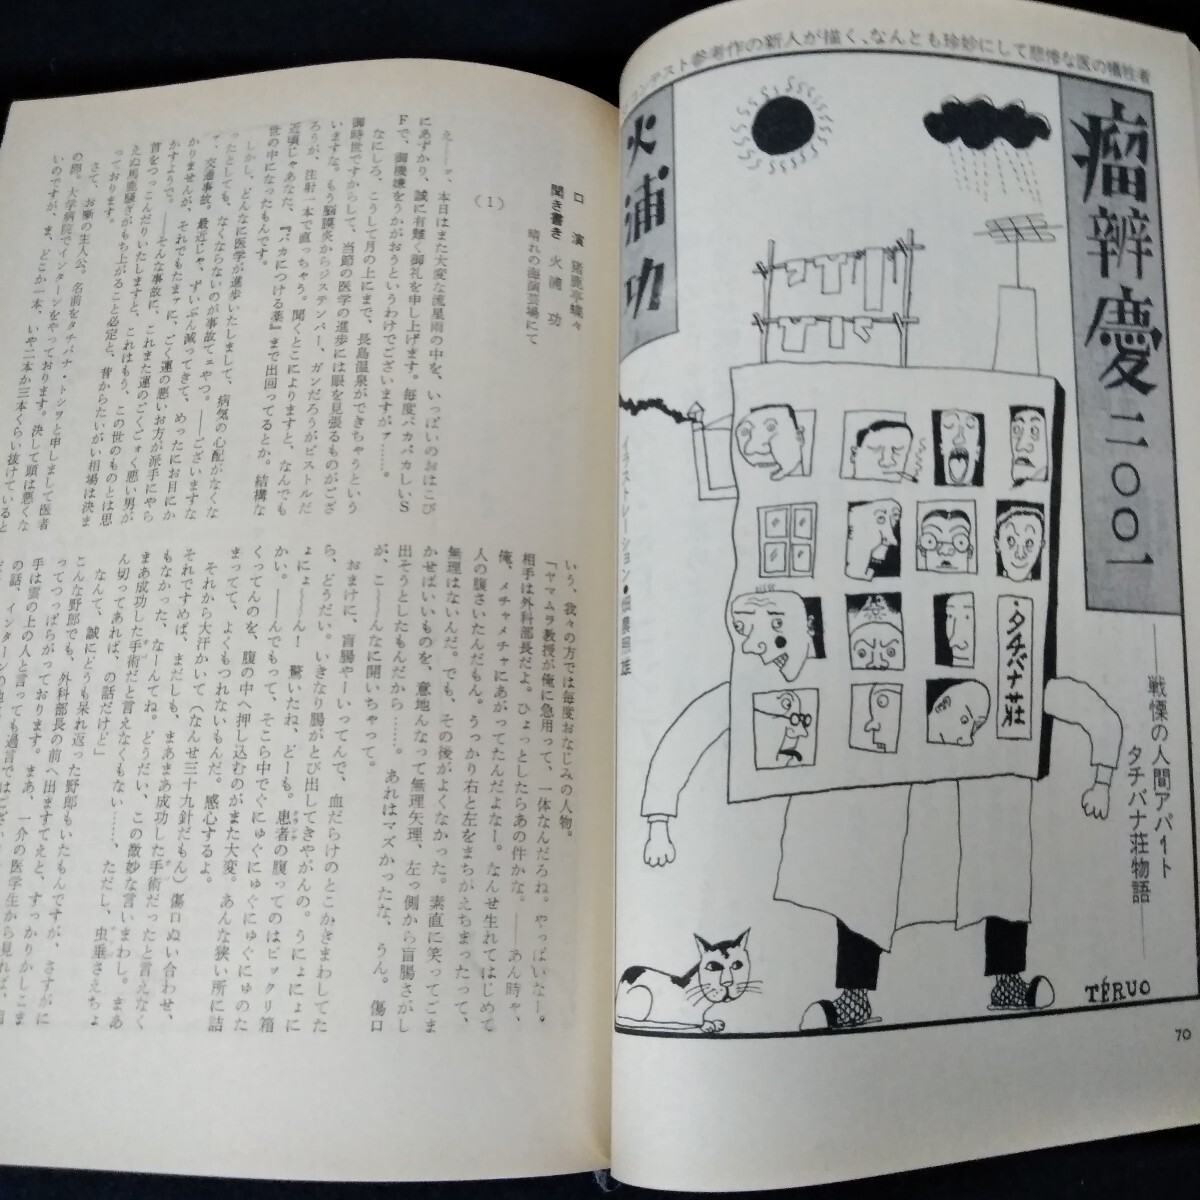 コンテスト参考作の新人が描く、なんとも珍妙にして悲惨な医の犠牲者
瘤辨慶二〇〇一
――戦慄の人間アパート
タチバナ荘物語――
火浦功
イラストレーション・畑農照雄
・タチバナ荘
TÉRUO
70
口演 猪鹿亭蝶々
聞き書き 火浦 功
晴れの海演芸場にて
(1)
え――ァ、本日はまた大変な流星雨の中を、いっぱいのおはこび
にあずかり、誠に有難く御礼を申し上げます。毎度バカバカしいS
Fで、御機嫌をうかがおうというわけでございますがァ……。
なにしろ、こうして月の上にまで、長島温泉ができちゃうという
御時世ですからして、当節の医学の進歩には眼を見張るものがござ
いますな。もう脳膜炎からジステンパー、ガンだろうがピストルだ
ろうが、注射一本で直っちゃう。聞くとこによりますと、なんでも
近頃じゃあなた、『バカにつける薬』まで出回ってるとか。結構な
世の中になったもんです。
しかし、どんなに医学が進歩いたしまして、病気の心配がなくな
ったとしても、なくならないのが事故てェやつ。――ございますな
ァ、交通事故。最近じゃ、ずいぶん減ってきて、めったにお目にか
かりませんが、それでもたまァに、ごく運の悪いお方が派手にやら
かすようで。――そんな事故に、これまた運のごくごォく悪い男が
首をつっこんだりいたしますと、これはもう、この世のものとは思
えぬ馬鹿騒ぎがもち上がること必定と、昔からたいがい相場は決ま
っております。
さて、お噺の主人公。名前をタチバナ・トシヲと申しまして医者
の卵。大学病院でインターンをやっております。決して頭は悪くな
いのですが、ま、どこか一本、いや二本か三本くらい抜けていると
いう、我々の方では毎度おなじみの人物。
「ヤマムラ教授が俺に急用って、一体なんだろね。やっぱいなー。
相手は外科部長だよ。ひょっとしたらあの件かな。――あん時ゃ、
俺、メチャメチャにあがってたんだよなー。なんせ生れてはじめて
人の腹さいたんだもん。うっかり右と左をまちがえちまったって、
無理はないんだ。でも、その後がよくなかった。素直に笑ってごま
かせばいいものを、意地んなって無理矢理、左っ側から盲腸さがし
出そうとしたもんだから……。あれはマズかったな、うん。傷口
が、こ――んなに開いちゃって。
おまけに、盲腸やーいってんで、血だらけのとこかきまわしてた
ら、どうだい。いきなり腸がとび出してきやがんの。うにょにょに
ょにょ〜〜ん! 驚いたね、どーも。患者の腹ってのはビックリ箱
かい。――んでもって、そこら中でぐにゅぐにゅぐにゅぐにゅのた
くってんのを、腹の中へ押し込むのがまた大変。あんな狭い所に詰
まってて、よくもつれないもんだ。感心するよ。
それから大汗かいて(なんせ三十九針だもん)傷口ぬい合わせ、
それですめば、まだしも、まあまあ成功した手術だったと言えなく
もなかった、なーんてね。どうだい、この微妙な言いまわし。まあ
まあ成功した手術だと言えなくもない……、ただし、虫垂さえちょ
ん切ってあれば、の話だけど」
なんて、誠にどうも呆れ返った野郎もいたもんですが、さすがに
こんな野郎でも、外科部長の前へ出ますてえと、すっかりかしこま
ってつっぱらがっております。まあ、一介の医学生から見れば、目
手は雲の上の人と言っても過言ではござい